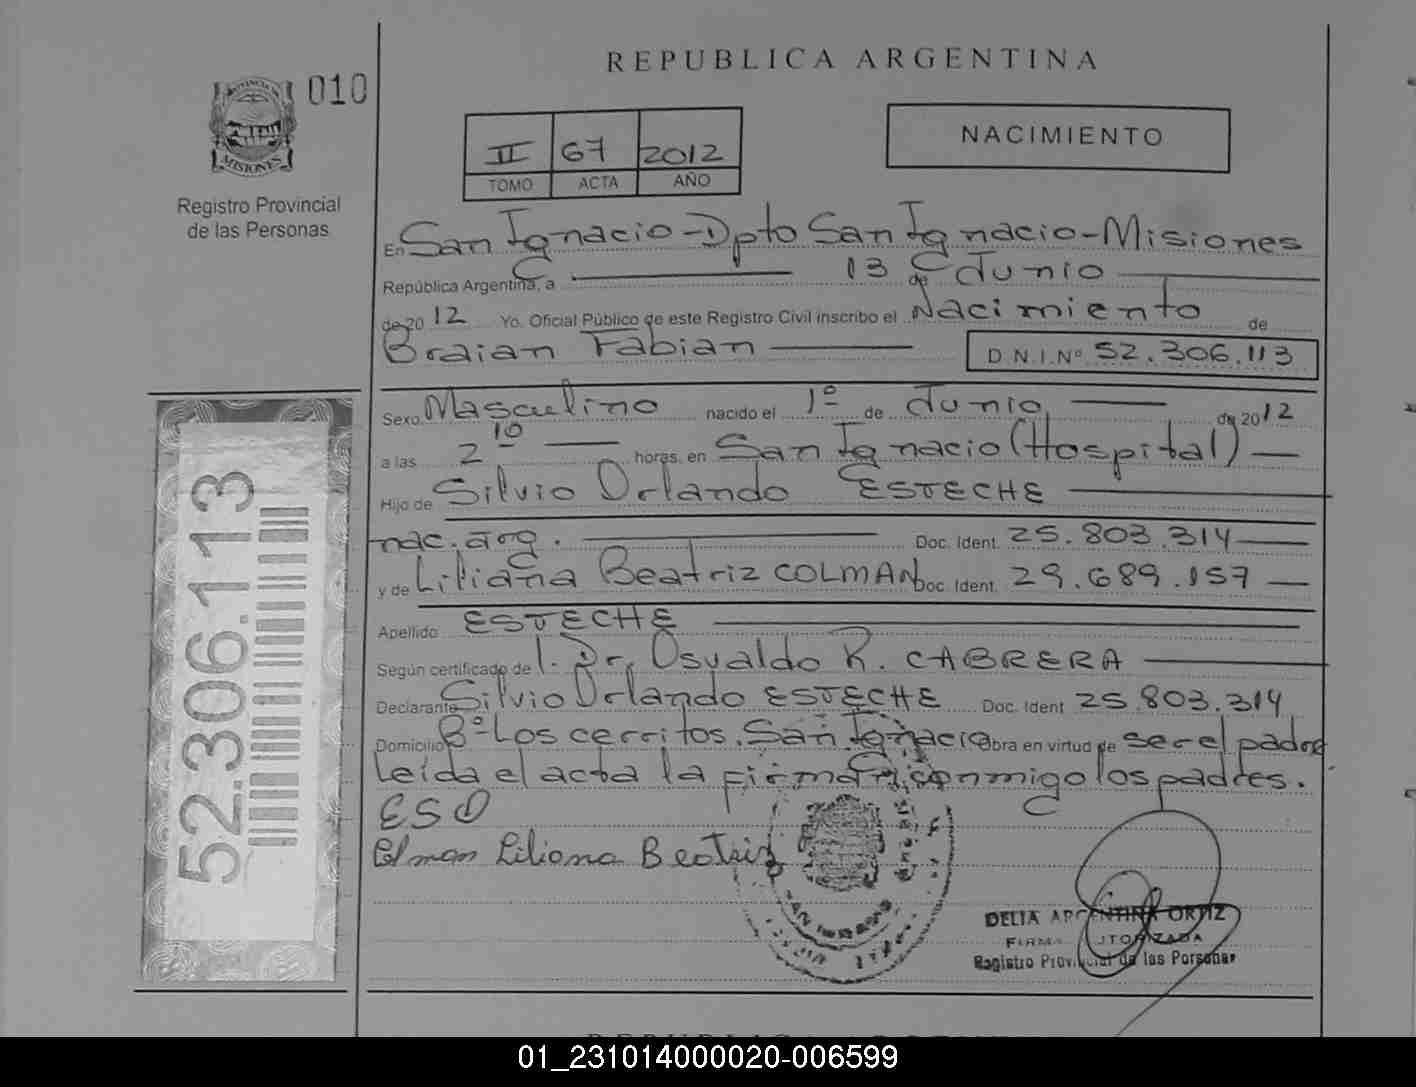 REPUBLICA ARGENTINA
010
PROVINCIA DE
MISIONES
Registro Provincial
de las Personas
NACIMIENTO
II 67 2012
TOMO ACTA AÑO
En San Ignacio - Dpto San Ignacio - Misiones
República Argentina, a 13 de Junio
de 20 12 Yo. Oficial Público de este Registro Civil inscribo el Nacimiento de
Braian Fabian
D.N.I.Nº 52.306.113
Sexo Masculino nacido el 1º de Junio de 2012
a las 2 10 horas, en San Ignacio (Hospital)
Hijo de Silvio Orlando ESTECHE
nac. arg. Doc. Ident. 25.803.314
y de Liliana Beatriz COLMAN Doc. Ident. 29.689.157
Apellido ESTECHE
Según certificado de l. Dr. Osvaldo R. CABRERA
Declarante Silvio Orlando ESTECHE Doc. Ident 25.803.314
Domicilio Bº Los cerritos. San Ignacio obra en virtud de ser el padre
Leída el acta la firman conmigo los padres.
ESO
Colman Liliana Beatriz
52.306.113
SAN IGNACIO
DELIA ARGENTINA ORTIZ
FIRMA AUTORIZADA
Registro Provincial de las Personas
01_231014000020-006599